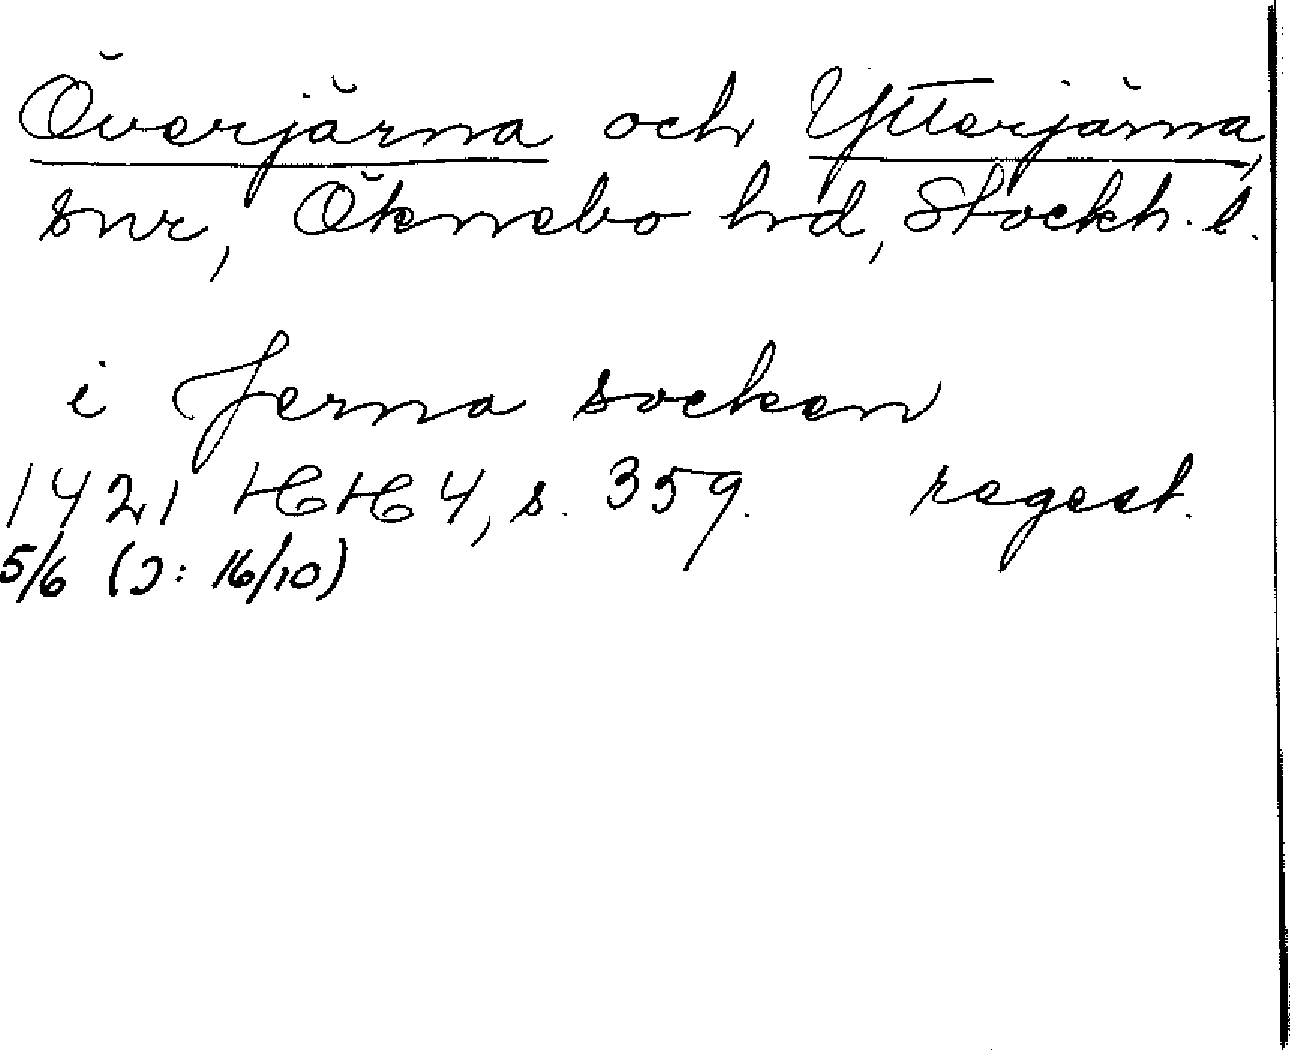 Överjärna och Ytterjärna,
snr, Öknebo hd, Stockh. l.
i Jerna socken
1421 HH 4, s. 359. regest.
5/6 (ɔ: 16/10)